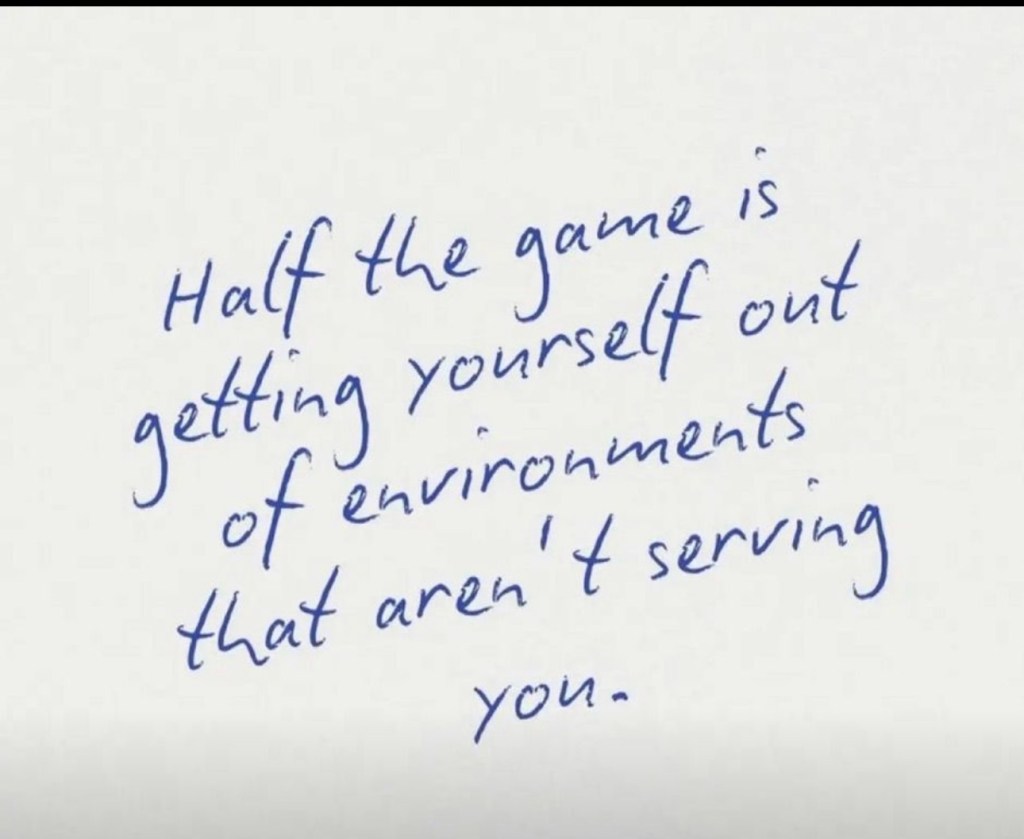 Half the game is
getting yourself out
of environments
that aren't serving
you.